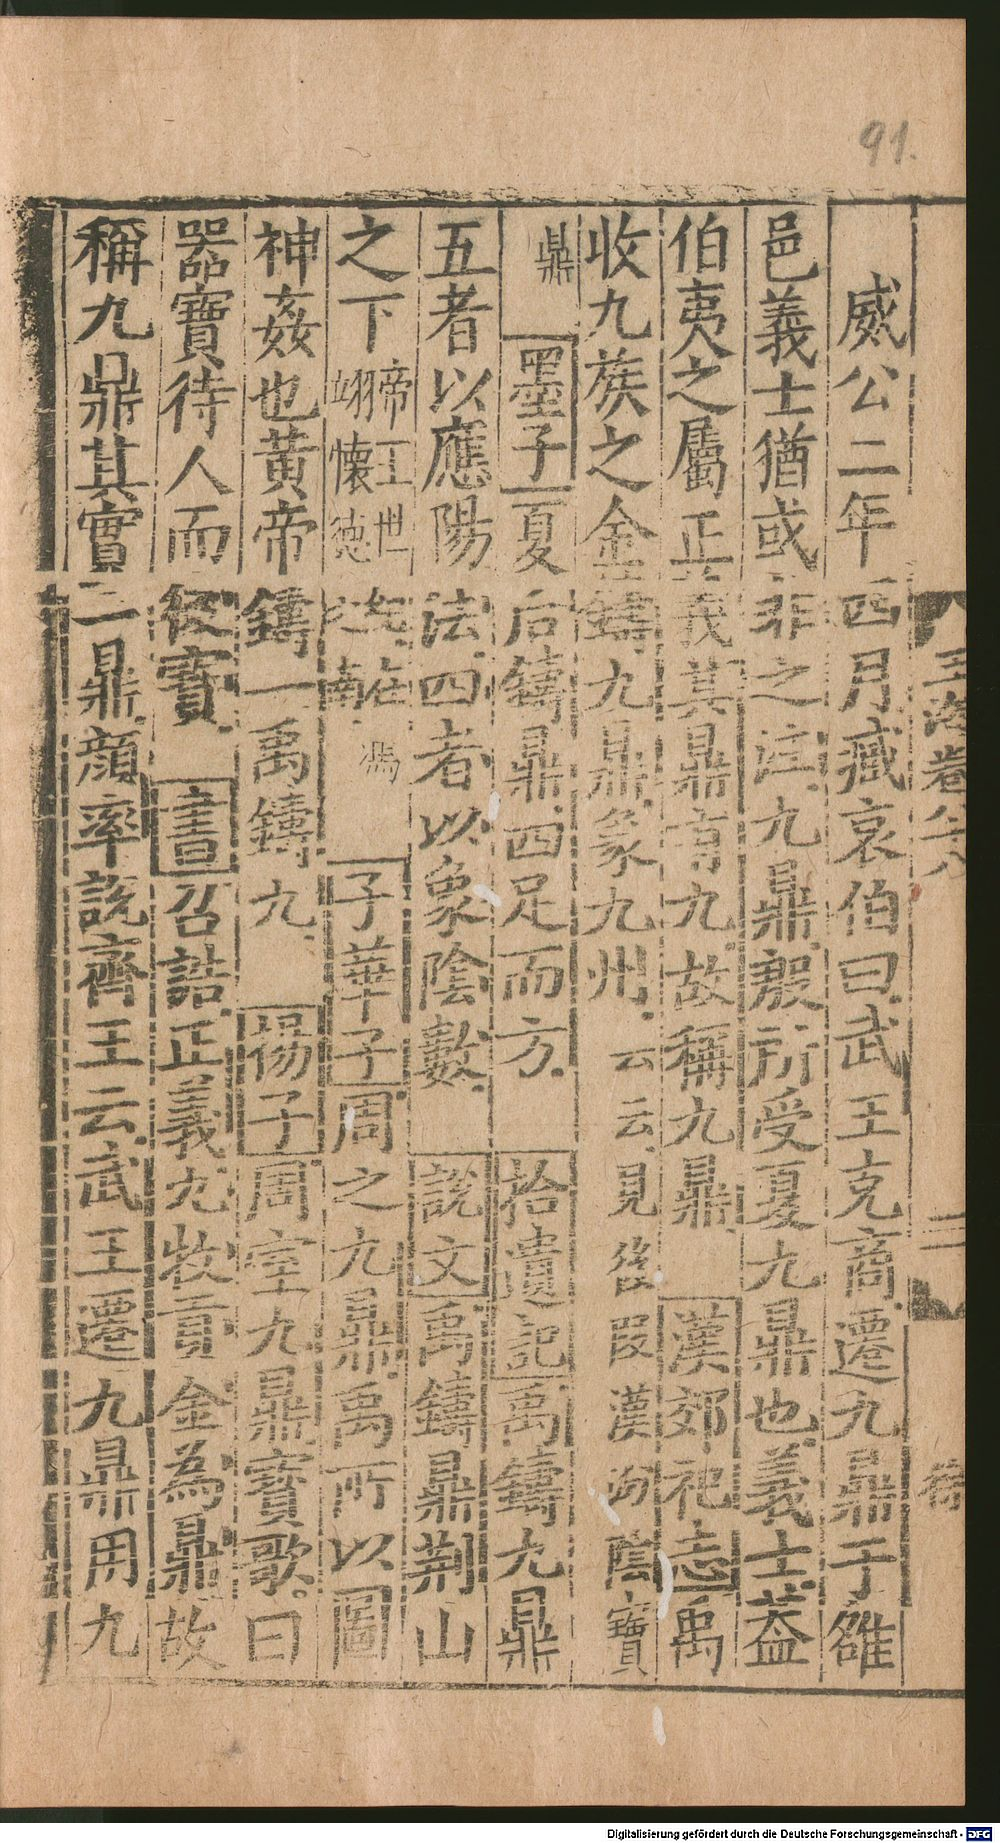 91.
威公二年四月臧哀伯曰武王克商遷九鼎于雒
邑義士猶或非之注九鼎殷所受夏九鼎也義士蓋
伯夷之屬正義其鼎有九故稱九鼎漢郊祀志禹
收九茨之金鑄九鼎象九州云云見後叚漢汾陰寶
鼎墨子夏后鑄鼎四足而方拾遺記禹鑄九鼎
五者以應陽法四者以象陰數說文禹鑄鼎荆山
之下帝王世紀在馮翊懷德之南子華子周之九鼎禹所以圖
神姦也黃帝鑄一禹鑄九揚子周室九鼎寶歌曰
器寶待人而後寶書召誥正義九牧貢金為鼎故
稱九鼎其實一鼎顏率說齊王云武王遷九鼎用九
玉海卷八八
二
Digitalisierung gefördert durch die Deutsche Forschungsgemeinschaft - DFG